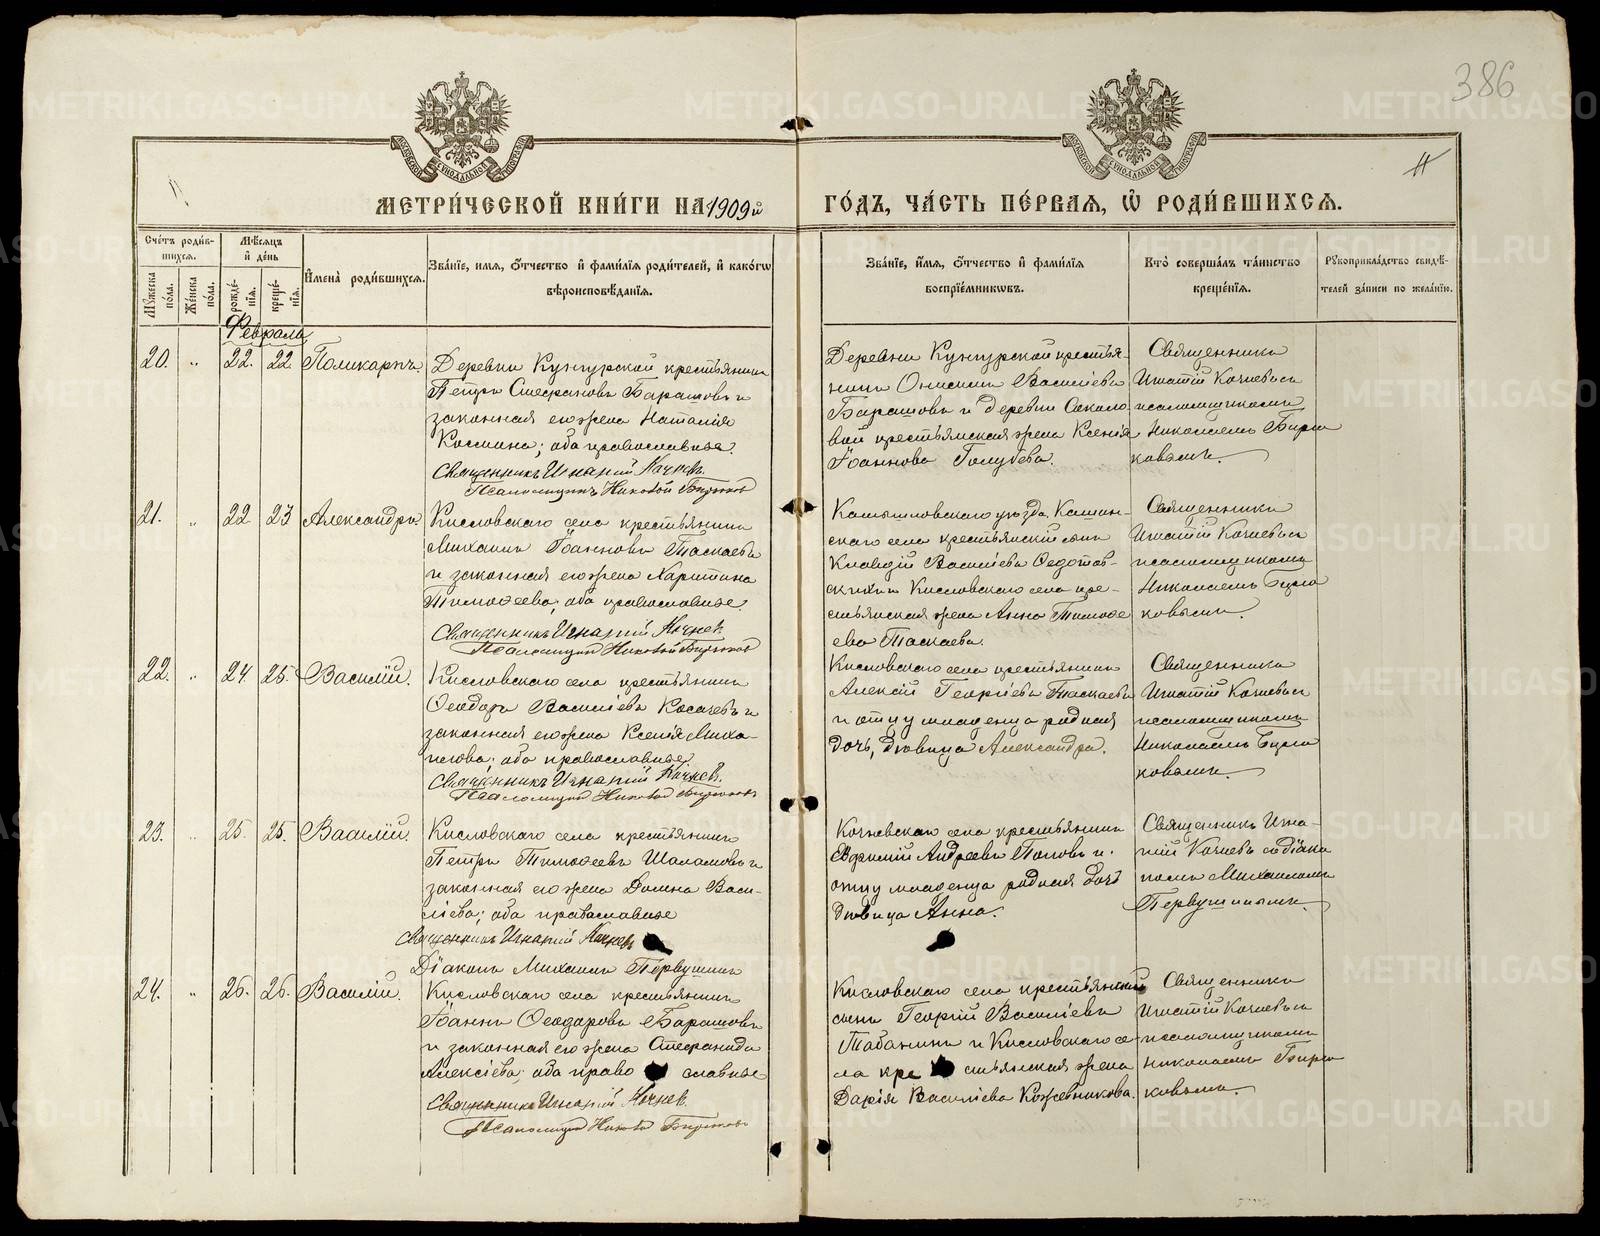 386
МЕТРИ́ЧЕСКОЙ КНИ́ГИ НА 1909й ГО́ДЪ, ЧА́СТЬ ПЕ́РВАЯ, Ѡ҆ РОДИ́ВШИХСЯ.
Сче́тъ роди́в-
шихся.
Мѣ́сяцъ
и҆ де́нь
Му́жеска
по́ла.
Же́нска
по́ла.
рожде́-
нїя.
креще́-
нїя.
И҆мена̀ роди́вшихся.
Зва́нїе, и҆мя, Ѻ҆́тчество и҆ фами́лїя роди́телей, и҆ како́гѡ
вѣроисповѣ́данїя.
Зва́нїе, и҆́мя, Ѻ҆́тчество и҆ фами́лїя
воспрїе́мникѡвъ.
Кто̀ соверша́лъ та́инство
креще́нїя.
Рꙋкоприкла́дство свидѣ́-
телей за́писи по жела́нїю.
Февраль
20. „ 22. 22. Поликарпъ.
Деревни Кунгурской крестьянинъ
Петръ Стефановъ Барашовъ и
законная его жена Наталія
Космина; оба православные.
Священникъ Игнатій Кочневъ.
Псаломщикъ Николай Бирюковъ
Деревни Кунгурской крестья-
нинъ Онисимъ Василіевъ
Барашовъ и деревни Соколо-
вой крестьянская жена Ксенія
Іоаннова Голубева.
Священникъ
Игнатій Кочневъ съ
псаломщикомъ
Николаемъ Бирю
ковымъ.
21. „ 22 23 Александръ.
Кисловскаго села крестьянинъ
Михаилъ Іоанновъ Таскаевъ
и законная его жена Харитина
Тимоѳеева; оба православные.
Священникъ Игнатій Кочнев.
Псаломщикъ Николай Бирюков
Камышловскаго уѣзда, Кашин-
скаго села крестьянскій сынъ
Клавдій Василіевъ Ѳедотов-
скихъ и Кисловскаго села кре-
стьянская жена Анна Тимоѳе
ева Таскаева.
Священникъ
Игнатій Кочневъ съ
псаломщикомъ
Николаемъ Бирю
ковымъ.
22. „ 24. 25. Василій.
Кисловскаго села крестьянинъ
Ѳеодоръ Василіевъ Косачевъ и
законная его жена Ксенія Миха-
илова; оба православные.
Священникъ Игнатій Кочнев.
Псаломщикъ Николай Бирюков
Кисловскаго села крестьянинъ
Алексій Георгіевъ Таскаевъ
и отцу младенца родная
дочь, дѣвица Александра.
Священникъ
Игнатій Кочневъ съ
псаломщикомъ
Николаемъ Бирю
ковымъ.
23. „ 25. 25. Василій.
Кисловскаго села крестьянинъ
Петръ Тимоѳеевъ Шаламовъ и
законная его жена Домна Васи-
ліева; оба православные
Священникъ Игнатій Кочнев
Діаконъ Михаилъ Первушинъ
Кочневскаго села крестьянинъ
Евѳимій Андреевъ Поповъ и
отцу младенца родная дочь
дѣвица Анна.
Священникъ Игна-
тій Кочневъ съ діако
номъ Михаиломъ
Первушинымъ.
24. „ 26. 26. Василій.
Кисловскаго села крестьянинъ
Іоаннъ Ѳеодоровъ Барашовъ
и законная его жена Стефанида
Алексіева; оба православные
Священникъ Игнатій Кочнев.
Псаломщикъ Николай Бирюков
Кисловскаго села крестьянскій
сынъ Георгій Василіевъ
Табанинъ и Кисловскаго се-
ла крестьянская жена
Дарія Василіева Кожевникова.
Священникъ
Игнатій Кочневъ съ
псаломщикомъ
Николаемъ Бирю
ковымъ.
METRIKI.GASO-URAL.RU